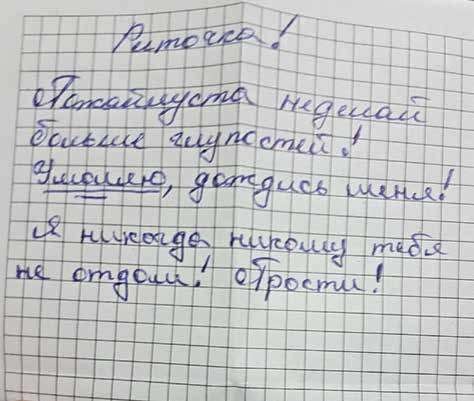 Риточка!
Пожалуста неделай
больше глупостей!
Умоляю, дождись меня!
Я никогда никому тебя
не отдам! Прости!